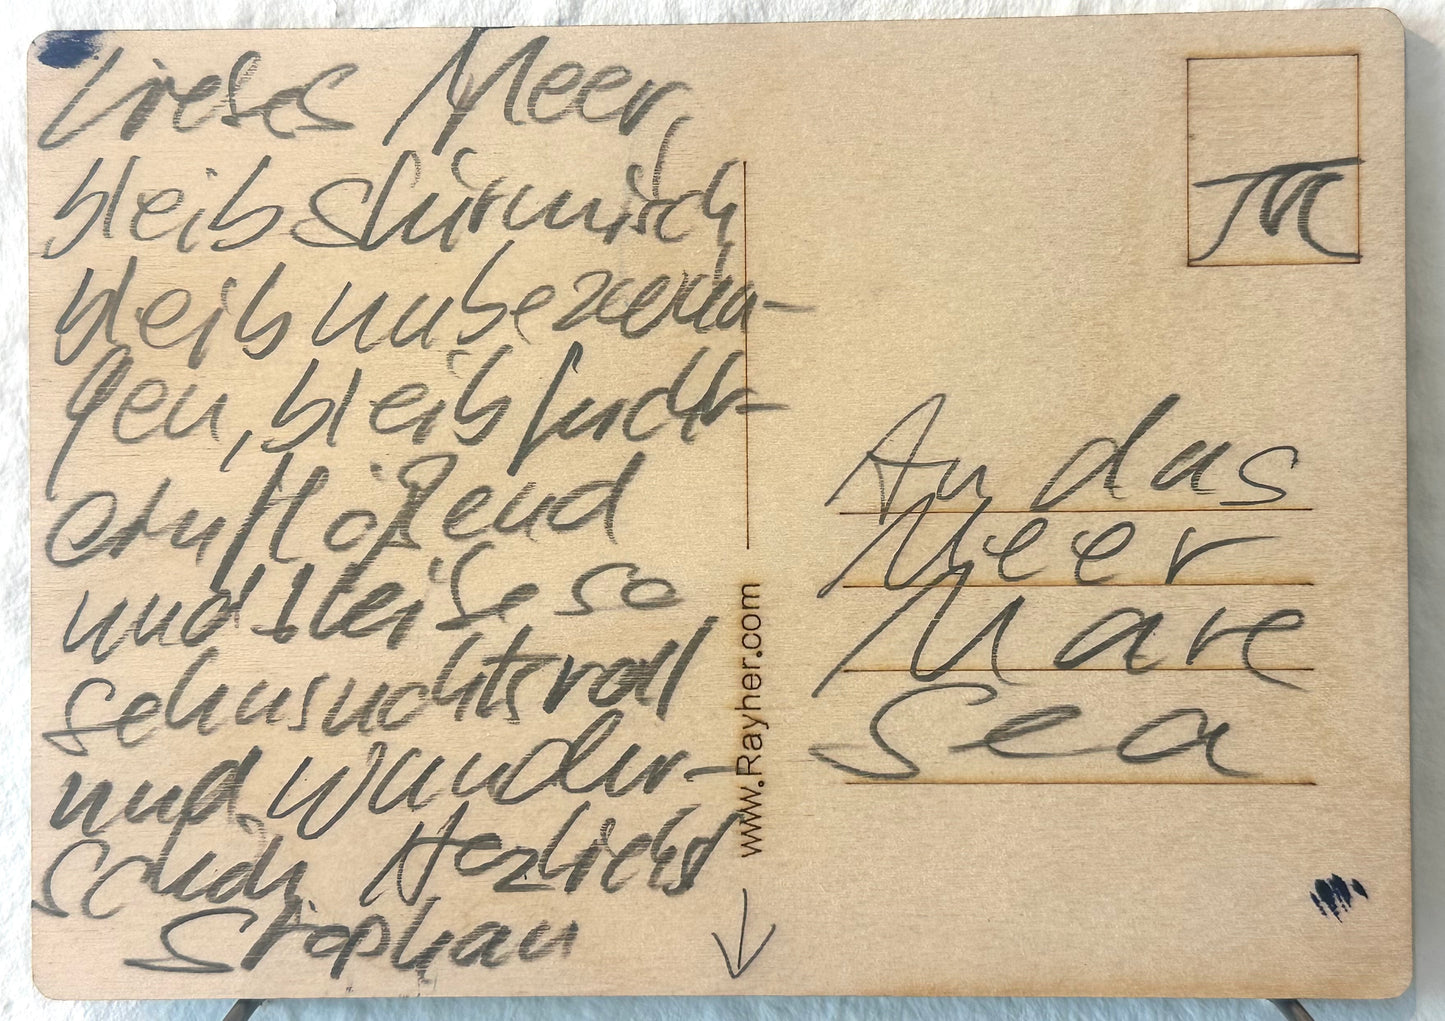 Liebes Meer,
bleib stürmisch
bleib unbezwun-
gen, bleib furcht-
einflößend
und bleibe so
sehnsuchtsvoll
und wunder-
schön Herzlichst
Stephan
www.Rayher.com
An das
Meer
Mare
Sea